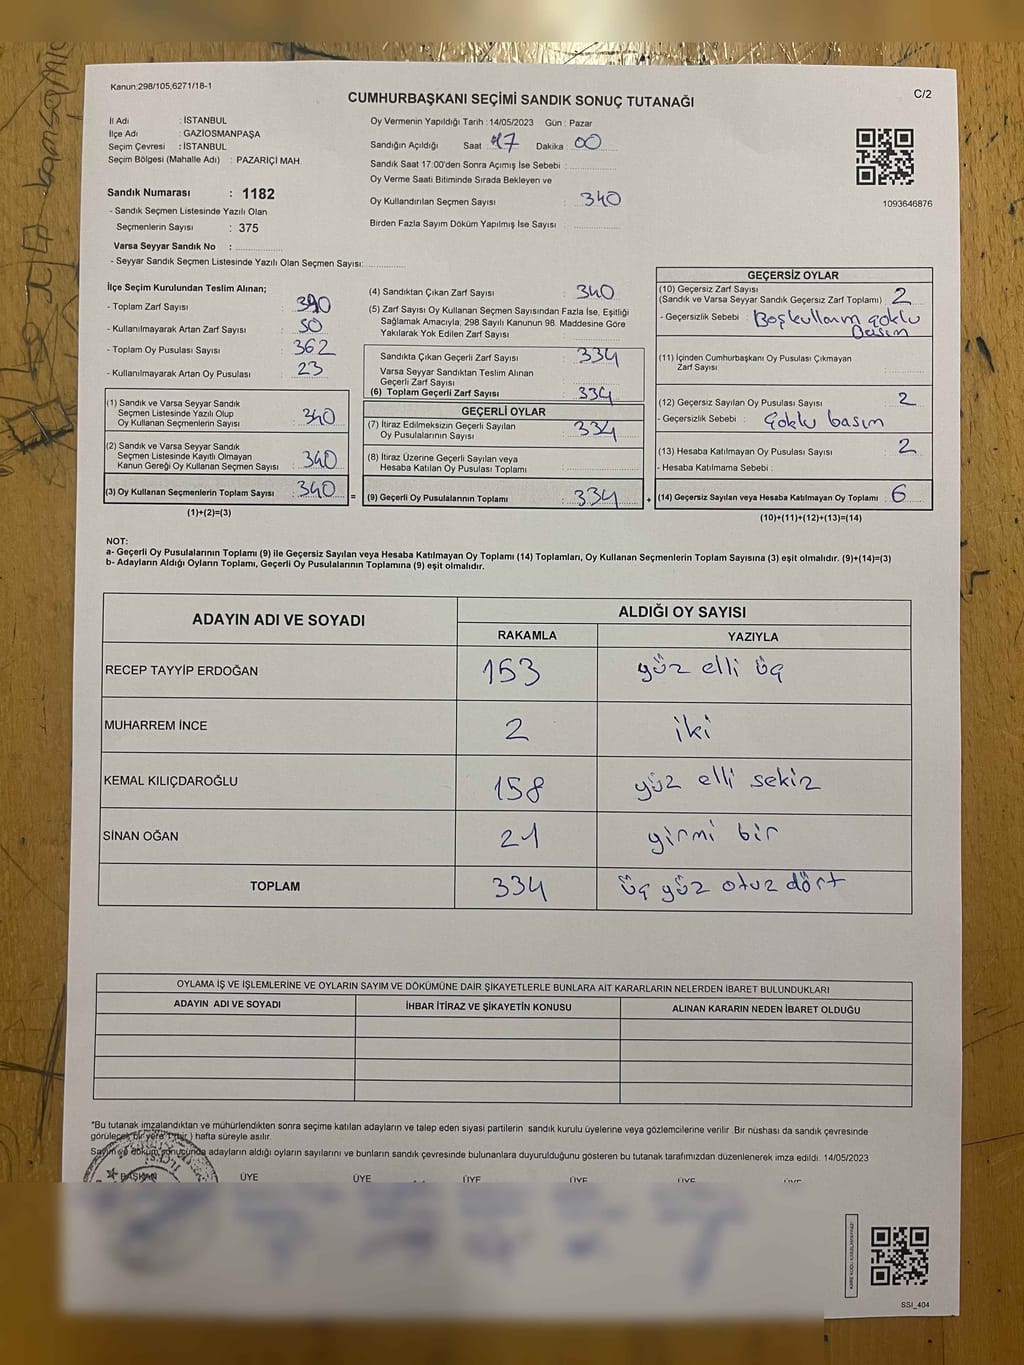 Kanun:298/105;6271/18-1
C/2
CUMHURBAŞKANI SEÇİMİ SANDIK SONUÇ TUTANAĞI
İl Adı : İSTANBUL
İlçe Adı : GAZİOSMANPAŞA
Seçim Çevresi : İSTANBUL
Seçim Bölgesi (Mahalle Adı) : PAZARİÇİ MAH.
Sandık Numarası : 1182
- Sandık Seçmen Listesinde Yazılı Olan
Seçmenlerin Sayısı : 375
Varsa Seyyar Sandık No :
- Seyyar Sandık Seçmen Listesinde Yazılı Olan Seçmen Sayısı:
Oy Vermenin Yapıldığı Tarih : 14/05/2023 Gün : Pazar
Sandığın Açıldığı Saat 17 Dakika 00
Sandık Saat 17:00'den Sonra Açımış İse Sebebi :
Oy Verme Saati Bitiminde Sırada Bekleyen ve
Oy Kullandırılan Seçmen Sayısı : 340
Birden Fazla Sayım Döküm Yapılmış İse Sayısı :
1093646876
İlçe Seçim Kurulundan Teslim Alınan;
- Toplam Zarf Sayısı : 390
- Kullanılmayarak Artan Zarf Sayısı : 50
- Toplam Oy Pusulası Sayısı : 362
- Kullanılmayarak Artan Oy Pusulası : 23
(1) Sandık ve Varsa Seyyar Sandık
Seçmen Listesinde Yazılı Olup
Oy Kullanan Seçmenlerin Sayısı : 340
(2) Sandık ve Varsa Seyyar Sandık
Seçmen Listesinde Kayıtlı Olmayan
Kanun Gereği Oy Kullanan Seçmen Sayısı : 340
(3) Oy Kullanan Seçmenlerin Toplam Sayısı : 340 =
(1)+(2)=(3)
(4) Sandıktan Çıkan Zarf Sayısı : 340
(5) Zarf Sayısı Oy Kullanan Seçmen Sayısından Fazla İse, Eşitliği
Sağlamak Amacıyla, 298 Sayılı Kanunun 98. Maddesine Göre
Yakılarak Yok Edilen Zarf Sayısı :
Sandıkta Çıkan Geçerli Zarf Sayısı : 334
Varsa Seyyar Sandıktan Teslim Alınan
Geçerli Zarf Sayısı :
(6) Toplam Geçerli Zarf Sayısı : 334
GEÇERLİ OYLAR
(7) İtiraz Edilmeksizin Geçerli Sayılan
Oy Pusulalarının Sayısı : 334
(8) İtiraz Üzerine Geçerli Sayılan veya
Hesaba Katılan Oy Pusulası Toplamı :
(9) Geçerli Oy Pusulalarının Toplamı : 334 +
GEÇERSİZ OYLAR
(10) Geçersiz Zarf Sayısı
(Sandık ve Varsa Seyyar Sandık Geçersiz Zarf Toplamı) : 2
- Geçersizlik Sebebi : Boş kullanım çoklu
basım
(11) İçinden Cumhurbaşkanı Oy Pusulası Çıkmayan
Zarf Sayısı :
(12) Geçersiz Sayılan Oy Pusulası Sayısı : 2
- Geçersizlik Sebebi : Çoklu basım
(13) Hesaba Katılmayan Oy Pusulası Sayısı : 2
- Hesaba Katılmama Sebebi :
(14) Geçersiz Sayılan veya Hesaba Katılmayan Oy Toplamı : 6
(10)+(11)+(12)+(13)=(14)
NOT:
a- Geçerli Oy Pusulalarının Toplamı (9) ile Geçersiz Sayılan veya Hesaba Katılmayan Oy Toplamı (14) Toplamları, Oy Kullanan Seçmenlerin Toplam Sayısına (3) eşit olmalıdır. (9)+(14)=(3)
b- Adayların Aldığı Oyların Toplamı, Geçerli Oy Pusulalarının Toplamına (9) eşit olmalıdır.
ADAYIN ADI VE SOYADI ALDIĞI OY SAYISI
RAKAMLA YAZIYLA
RECEP TAYYİP ERDOĞAN 153 yüz elli üç
MUHARREM İNCE 2 iki
KEMAL KILIÇDAROĞLU 158 yüz elli sekiz
SİNAN OĞAN 21 yirmi bir
TOPLAM 334 üç yüz otuz dört
OYLAMA İŞ VE İŞLEMLERİNE VE OYLARIN SAYIM VE DÖKÜMÜNE DAİR ŞİKAYETLERLE BUNLARA AİT KARARLARIN NELERDEN İBARET BULUNDUKLARI
ADAYIN ADI VE SOYADI İHBAR İTİRAZ VE ŞİKAYETİN KONUSU ALINAN KARARIN NEDEN İBARET OLDUĞU
"Bu tutanak imzalandıktan ve mühürlendikten sonra seçime katılan adayların ve talep eden siyasi partilerin sandık kurulu üyelerine veya gözlemcilerine verilir. Bir nüshası da sandık çevresinde
görülecek bir yere 1 (bir) hafta süreyle asılır.
Sayım ve döküm sonucunda adayların aldığı oyların sayılarını ve bunların sandık çevresinde bulunanlara duyurulduğunu gösteren bu tutanak tarafımızdan düzenlenerek imza edildi. 14/05/2023
BAŞKAN ÜYE ÜYE ÜYE ÜYE ÜYE ÜYE
SSI_404